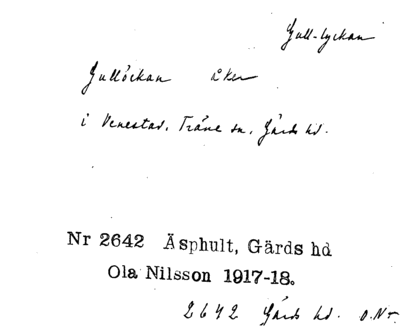 Gull-lyckan
Gullöckan åker
i Venestad, Träne sn, Gärds hd.
Nr 2642 Äsphult, Gärds hd
Ola Nilsson 1917-18.
2642 Gärds hd. O.N-.